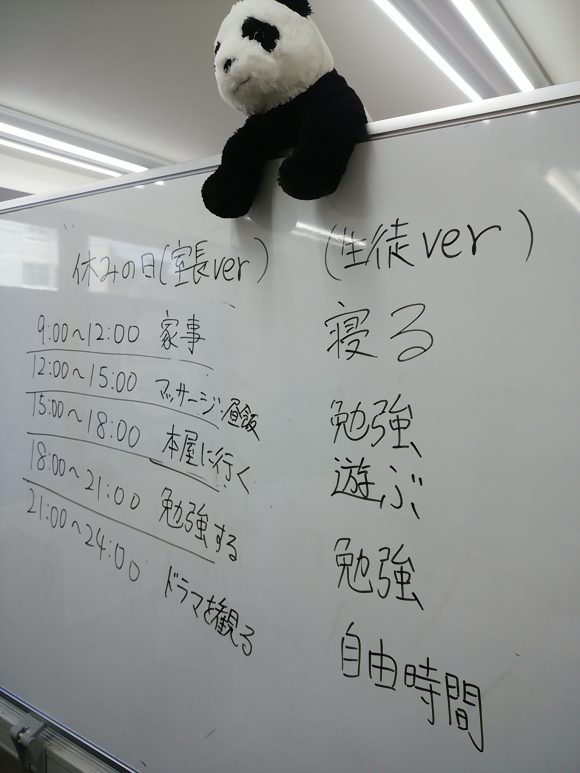 休みの日(室長ver)
9:00〜12:00 家事
12:00〜15:00 マッサージ・昼飯
15:00〜18:00 本屋に行く
18:00〜21:00 勉強する
21:00〜24:00 ドラマを観る
(生徒ver)
寝る
勉強
遊ぶ
勉強
自由時間